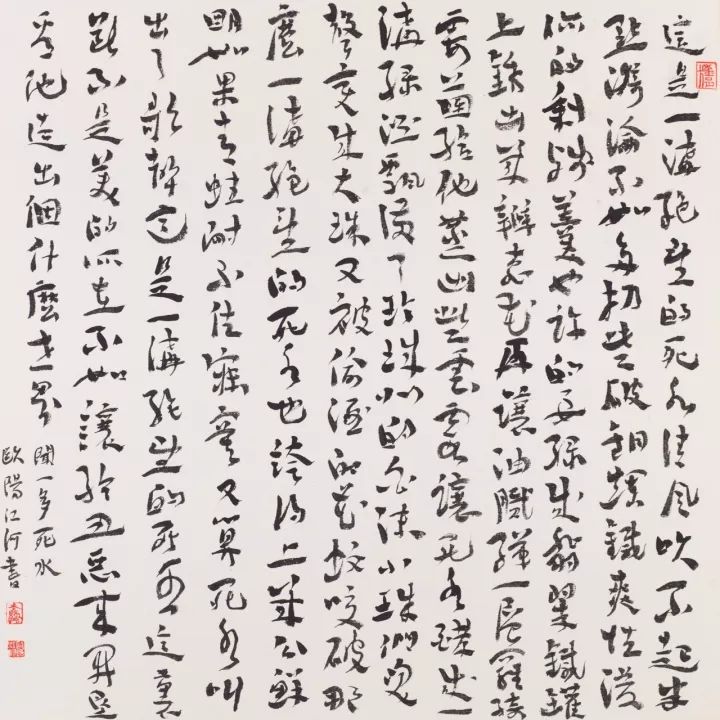 這是一溝絕望的死水清風吹不起半
點漪淪不如多扔些破銅爛鐵爽性潑
你的剩殘羹也許的要綠成翡翠鐵罐
上銹出幾瓣桃花再讓油膩織一層羅綺
霉菌給他蒸出些雲霞讓死水酵成一
溝綠酒飄滿了珍珠似的白沫小珠們笑
聲變成大珠又被偷酒的花蚊咬破那
麼一溝絕望的死水也誇得上幾分鮮
明如果青蛙耐不住寂寞又算死水叫
出了歌聲這是一溝絕望的死水這裏
斷不是美的所在不如讓給丑惡來開墾
看他造出個什麼世界
聞一多死水
歐陽江河書